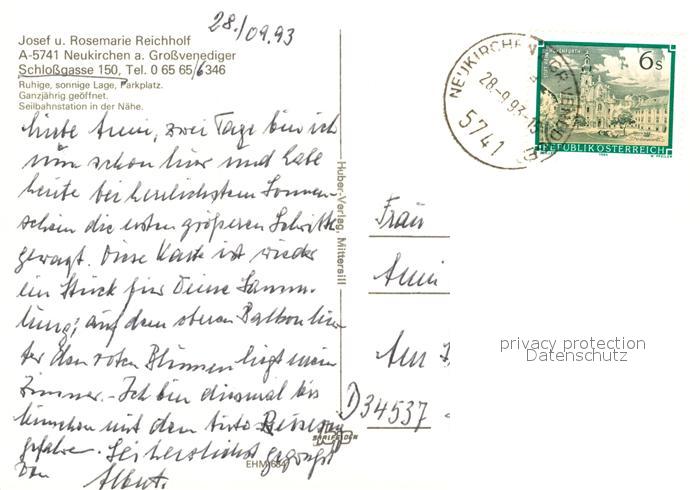 28./09.93
Josef u. Rosemarie Reichholf
A-5741 Neukirchen a. Großvenediger
Schloßgasse 150, Tel. 0 65 65/6346
Ruhige, sonnige Lage, Parkplatz.
Ganzjährig geöffnet.
Seilbahnstation in der Nähe.
Liebe Anni, zwei Tage bin ich
nun schon hier und habe
heute bei herrlichstem Sonnen-
schein die ersten größeren Schritte
gewagt. Diese Karte ist wieder
ein Stück für Deine Samm-
lung; auf dem oberen Balkon hin-
ter den roten Blumen liegt mein
Zimmer. - Ich bin diesmal bis
München mit dem Auto
gefahren. Sei herzlichst gegrüßt
von Albert.
Huber-Verlag, Mittersill
EHM 684
NEUKIRCHEN
28.-9.93-15
5741
6 s
REPUBLIK ÖSTERREICH
Frau
Anni
Am
D 34537
privacy protection
Datenschutz